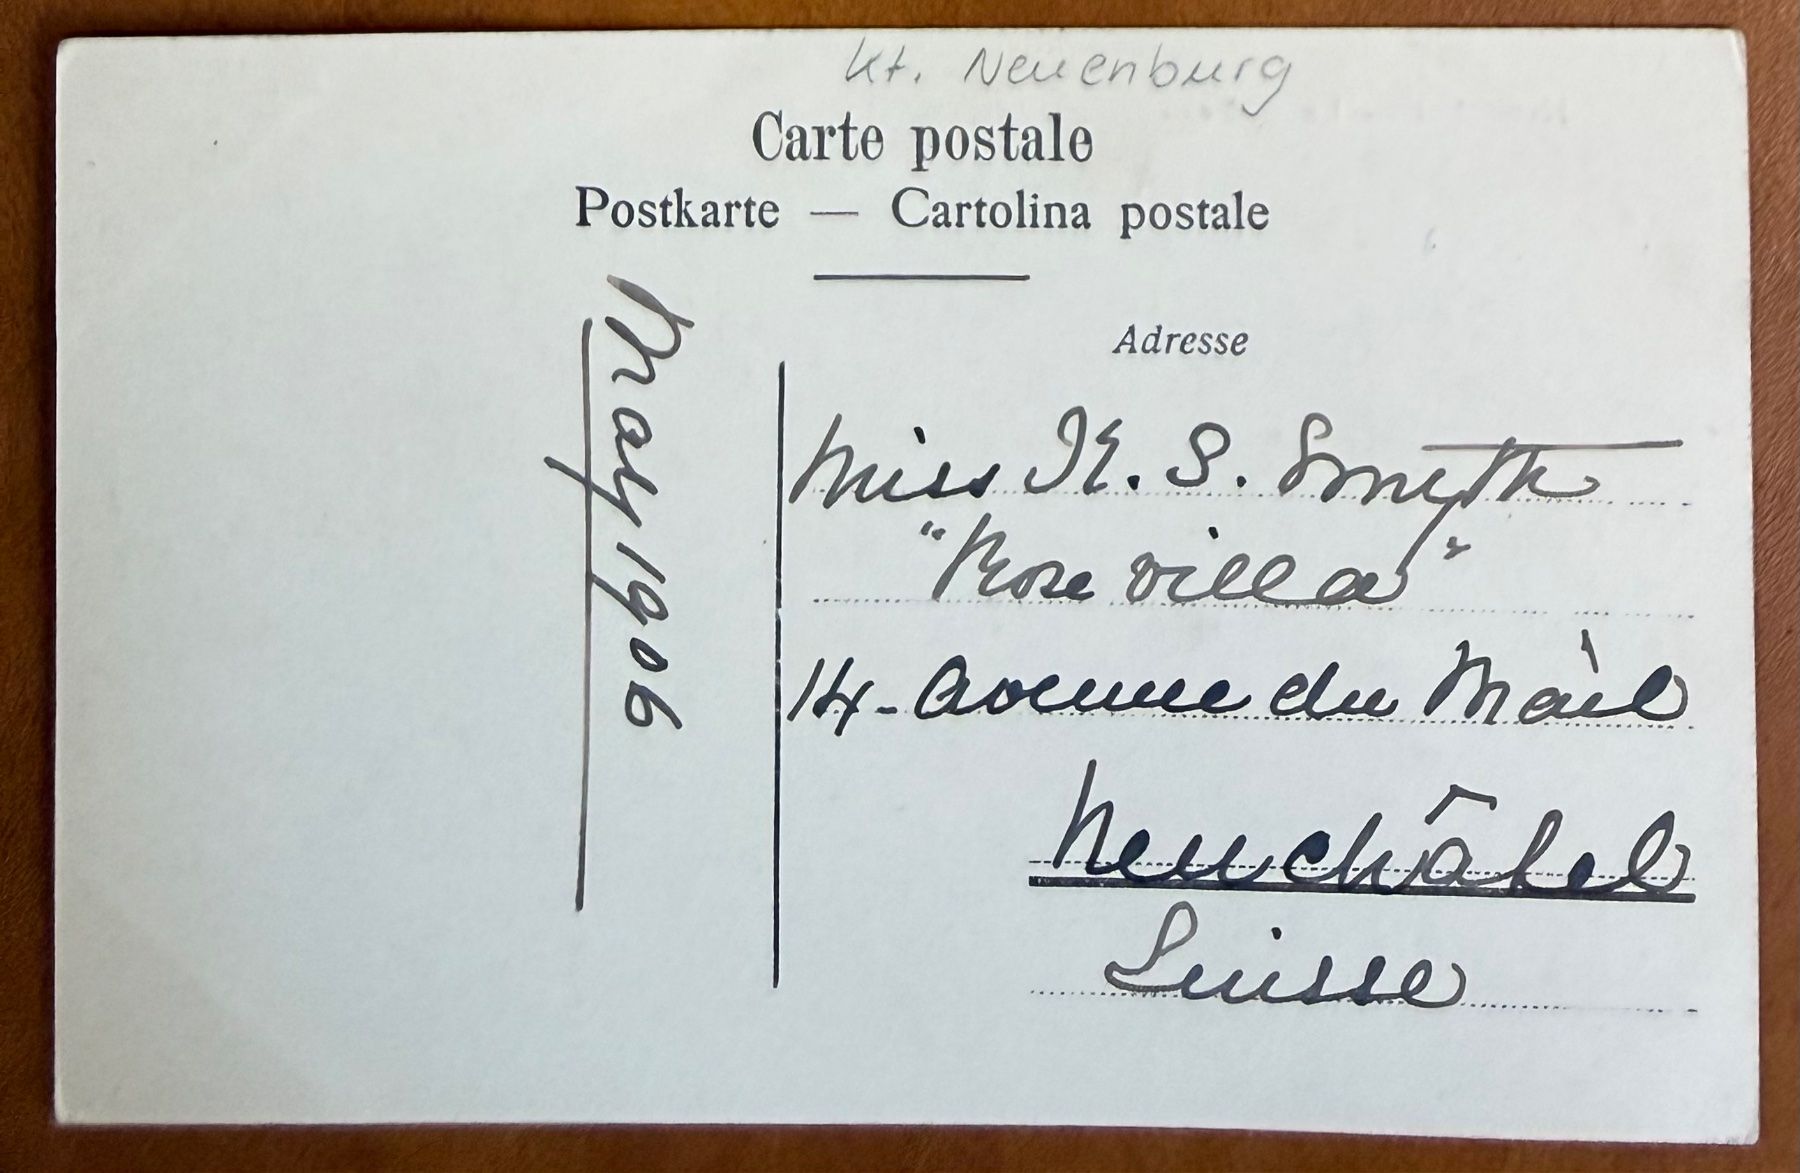 Kt. Neuenburg
Carte postale
Postkarte — Cartolina postale
Adresse
May 1906
Miss K. S. Smyth
"Rose villa"
14 - Avenue du Mail
Neuchâtel
Suisse